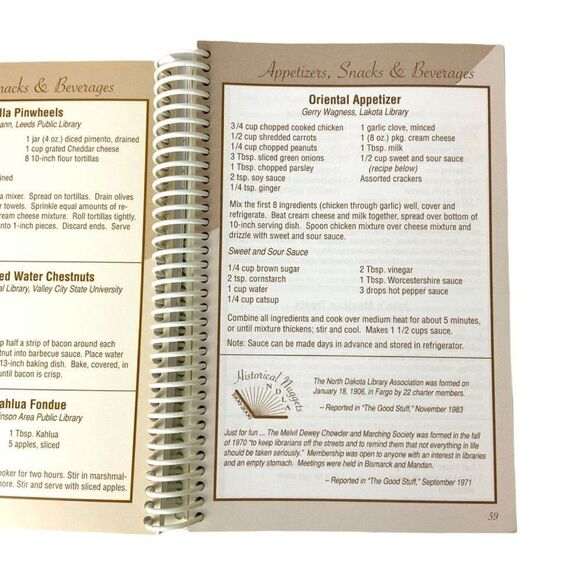 nacks & Beverages
lla Pinwheels
ann, Leeds Public Library
1 jar (4 oz.) diced pimento, drained
1 cup grated Cheddar cheese
8 10-inch flour tortillas
ined
a mixer. Spread on tortillas. Drain olives
r towels. Sprinkle equal amounts of re-
ream cheese mixture. Roll tortillas tightly.
nto 1-inch pieces. Discard ends. Serve
ed Water Chestnuts
al Library, Valley City State University
p half a strip of bacon around each
tnut into barbecue sauce. Place water
13-inch baking dish. Bake, covered, in
until bacon is crisp.
ahlua Fondue
inson Area Public Library
1 Tbsp. Kahlua
5 apples, sliced
ooker for two hours. Stir in marshmal-
more. Stir and serve with sliced apples.
Appetizers, Snacks & Beverages
Oriental Appetizer
Gerry Wagness, Lakota Library
3/4 cup chopped cooked chicken
1/2 cup shredded carrots
1/4 cup chopped peanuts
3 Tbsp. sliced green onions
1 Tbsp. chopped parsley
2 tsp. soy sauce
1/4 tsp. ginger
1 garlic clove, minced
1 (8 oz.) pkg. cream cheese
1 Tbsp. milk
1/2 cup sweet and sour sauce
(recipe below)
Assorted crackers
Mix the first 8 ingredients (chicken through garlic) well, cover and
refrigerate. Beat cream cheese and milk together, spread over bottom of
10-inch serving dish. Spoon chicken mixture over cheese mixture and
drizzle with sweet and sour sauce.
Sweet and Sour Sauce
1/4 cup brown sugar
2 tsp. cornstarch
1 cup water
1/4 cup catsup
2 Tbsp. vinegar
1 Tbsp. Worcestershire sauce
3 drops hot pepper sauce
Combine all ingredients and cook over medium heat for about 5 minutes,
or until mixture thickens; stir and cool. Makes 1 1/2 cups sauce.
Note: Sauce can be made days in advance and stored in refrigerator.
Historical Nuggets
NDLA
1906-2006
The North Dakota Library Association was formed on
January 18, 1906, in Fargo by 22 charter members.
– Reported in "The Good Stuff," November 1983
Just for fun ... The Melvil Dewey Chowder and Marching Society was formed in the fall
of 1970 "to keep librarians off the streets and to remind them that not everything in life
should be taken seriously." Membership was open to anyone with an interest in libraries
and an empty stomach. Meetings were held in Bismarck and Mandan.
– Reported in "The Good Stuff," September 1971
59